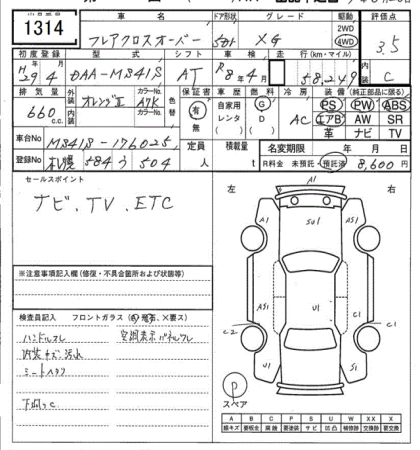 出品番号
1314
車名 ドア形状 グレード 駆動 評価点
フレアクロスオーバー 5ドア XG 2WD 4WD 3.5
初度登録 型式 シフト 車検 走行(km・マイル) 内装
H29年4月 DAA-MS41S AT R8年4月 58,249 C
排気量 外装 カラーNo. 色替 保証書 車歴 燃料 冷房 装備(純正部品に限る)
660c.c. オレンジⅡ A7K 有 無 自家用 レンタ G D AC PS PW ABS
内装 カラーNo. エアB AW SR
革 ナビ TV
車台No MS41S-176025 定員 積載量 名変期限 年 月 日
登録No 札幌 584 う 504 人 t R料金 未預託・預託済 8,600円
セールスポイント
ナビ、TV、ETC
※注意事項記入欄(修復・不具合箇所および状態等)
検査員記入 フロントガラス(飛石、×要ス)
ハンドルスレ 空調表示パネルスレ
内装キズ、汚れ
シートヘタリ
下廻りC
左 右
A1
A1 SU1 A1
AS1 U1 AS1 C1
C2 C1
U1 S1
P
スペア
A B C P S U W X XX X
線キズ 要板金 腐蝕 要塗装 サビ 凹凸 補修跡 交換跡 要交換